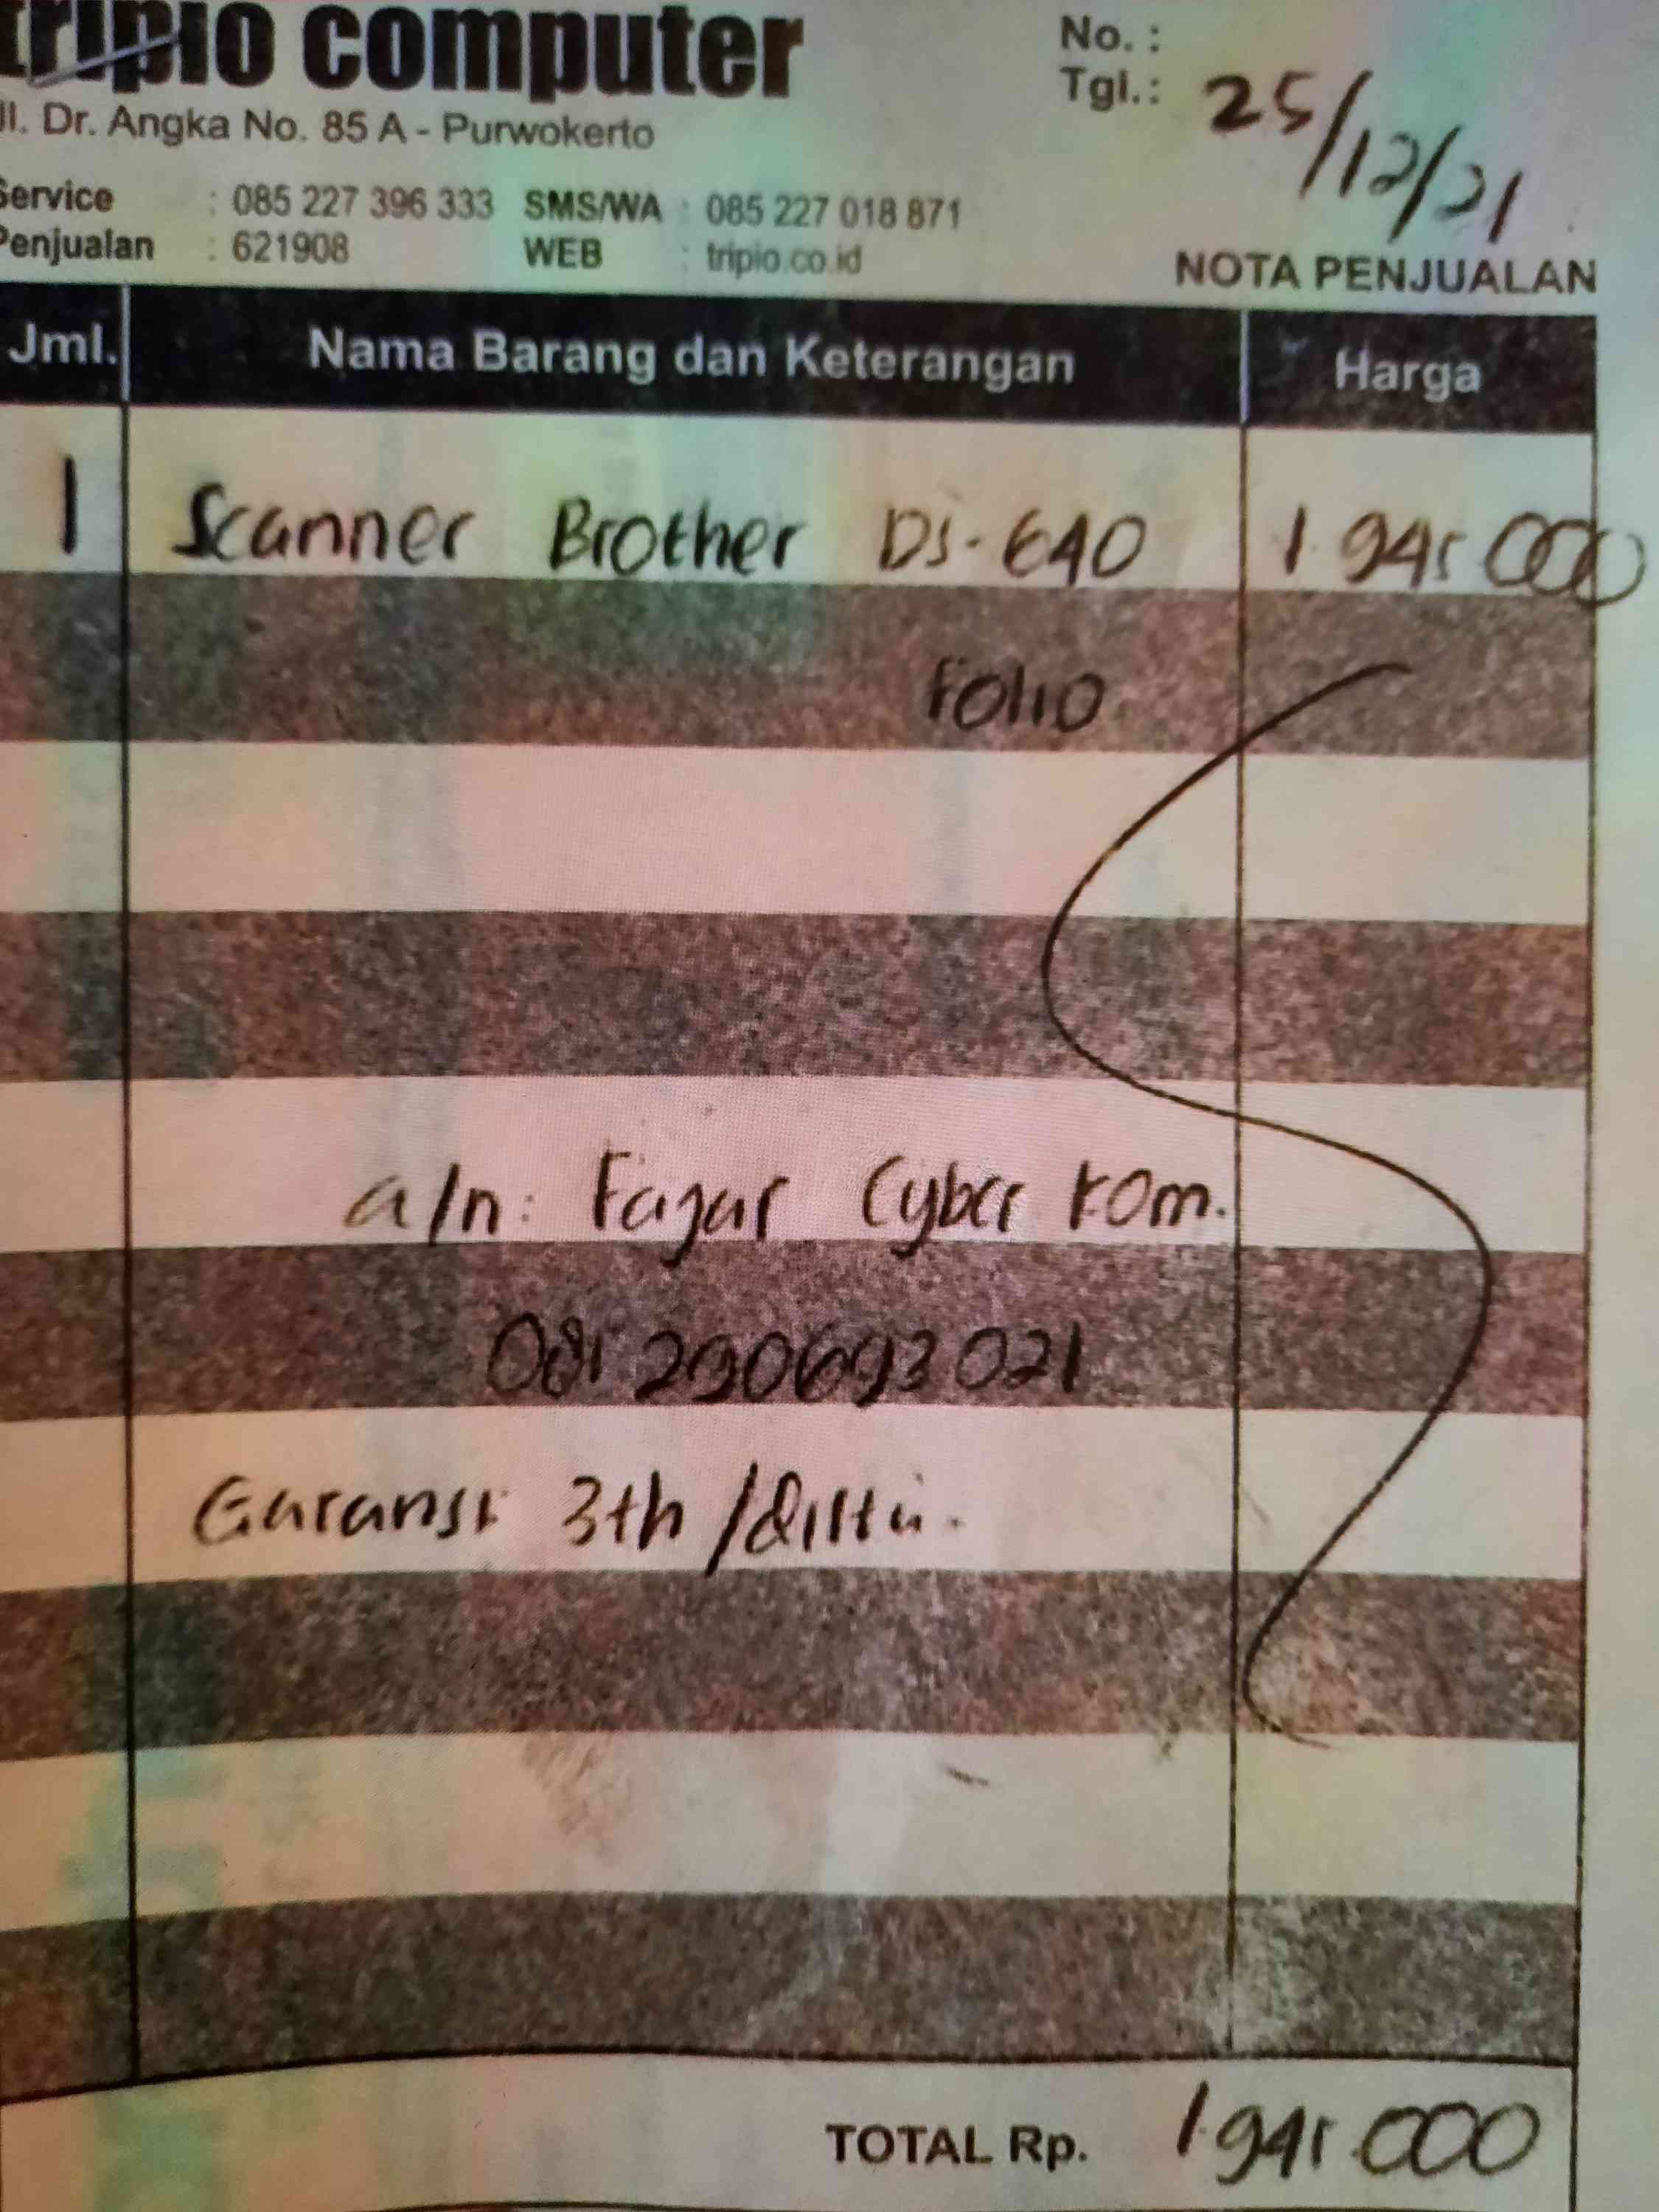 tripio computer
Jl. Dr. Angka No. 85 A - Purwokerto
Service : 085 227 396 333 SMS/WA : 085 227 018 871
Penjualan : 621908 WEB : tripio.co.id
No. :
Tgl.: 25/12/21
NOTA PENJUALAN
Jml. Nama Barang dan Keterangan Harga
1 Scanner Brother DS-640 1.945.000
Folio
a/n: Fajar Cyber Kom.
085 290693 021
Garansi 3th /
TOTAL Rp. 1.945.000